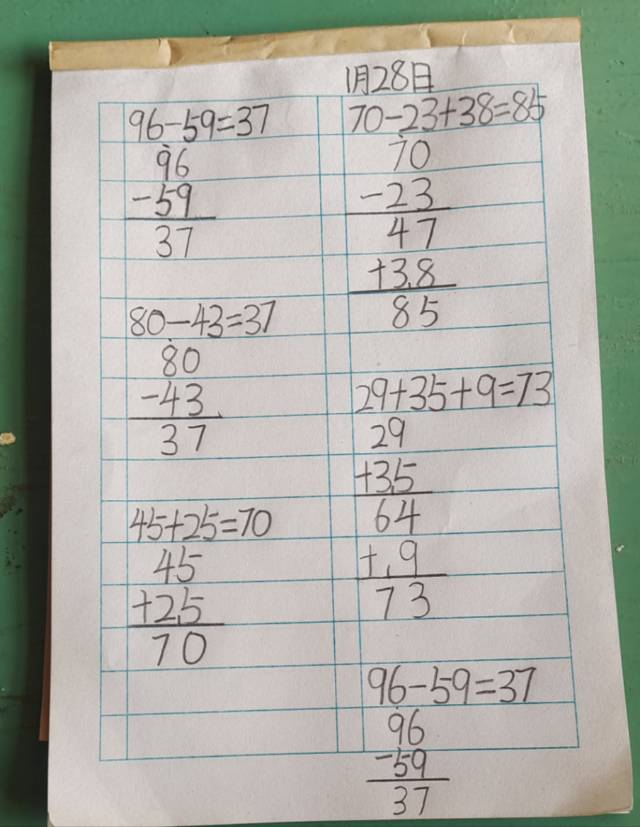 1月28日
96-59=37
96
-59
37
80-43=37
80
-43
37
45+25=70
45
+25
70
70-23+38=85
70
-23
47
+38
85
29+35+9=73
29
+35
64
+9
73
96-59=37
96
-59
37